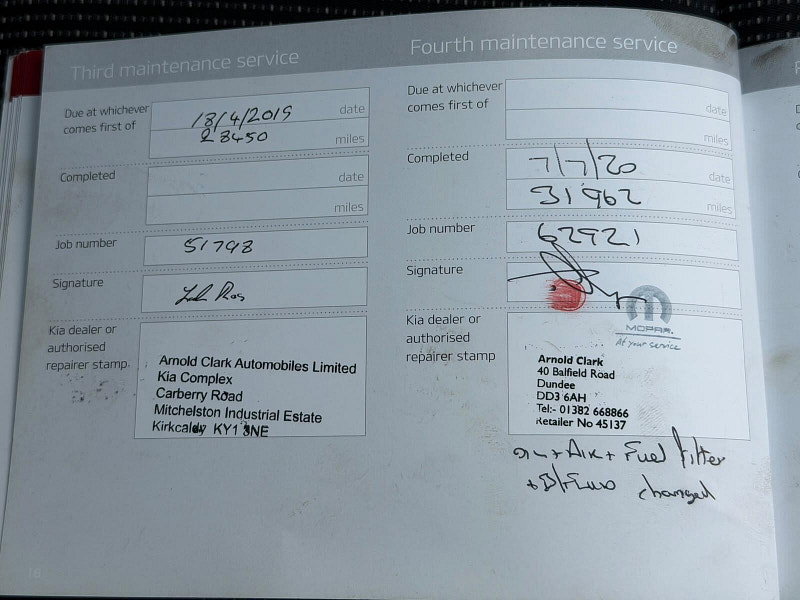 Third maintenance service
Due at whichever
comes first of
18/4/2019 date
28450 miles
Completed
date
miles
Job number
51798
Signature
Kia dealer or
authorised
repairer stamp
Arnold Clark Automobiles Limited
Kia Complex
Carberry Road
Mitchelston Industrial Estate
Kirkcaldy KY1 3NE
Fourth maintenance service
Due at whichever
comes first of
date
miles
Completed
7/7/20 date
31962 miles
Job number
62921
Signature
Kia dealer or
authorised
repairer stamp
MOPAR.
At your service
Arnold Clark
40 Balfield Road
Dundee
DD3 6AH
Tel:- 01382 668866
Retailer No 45137
+ Air + Fuel filter
changed